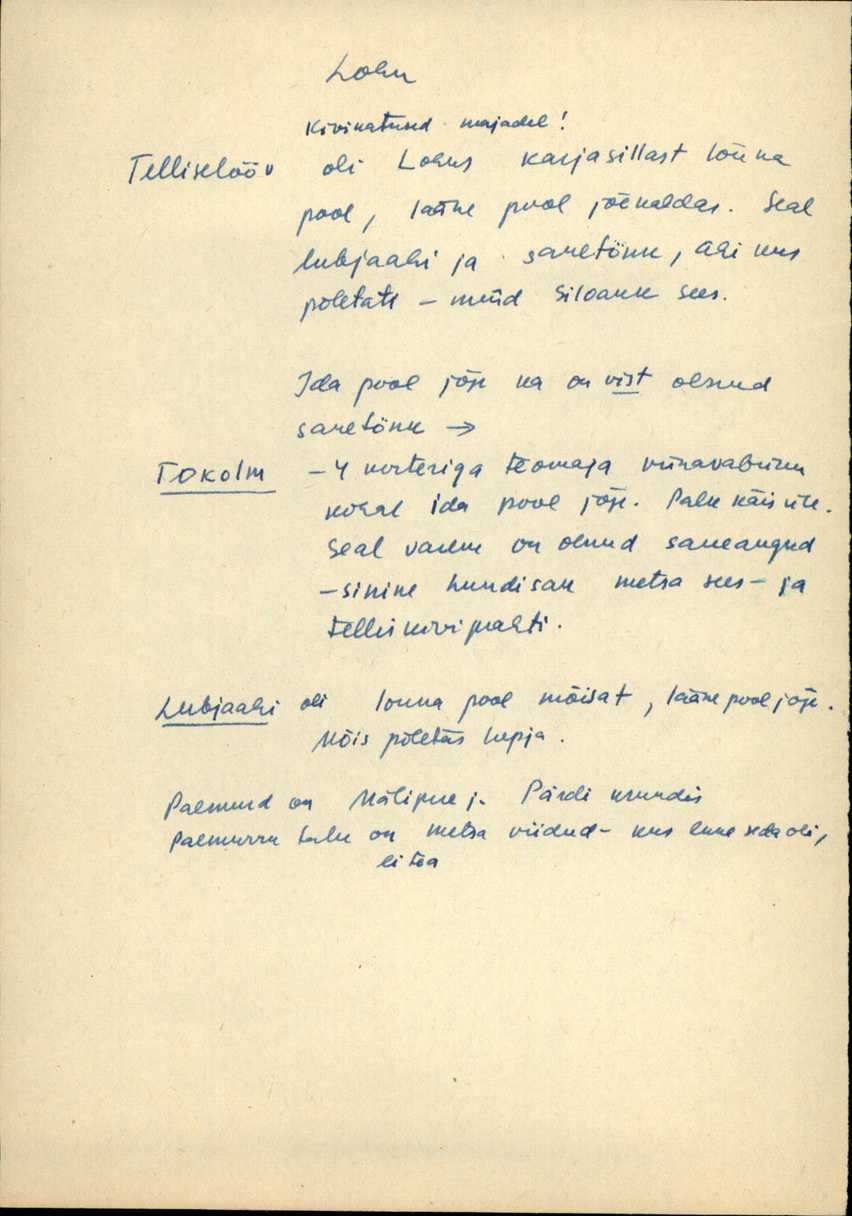 Lohu
Kivikatused majadel!
Telliselööv oli Lohus karjasillast lõuna
pool, lääne pool jõekaldas. Seal
lubjaahi ja saretönk, ahi kus
põletati – nüüd siloauk sees.
Ida pool jõge ka on vist olenud
saretönk →
TOKOLM – 4 korteriga teomaja viinavabriku
kohal ida pool jõge. Palk käis üle.
Seal varem on olnud saueaugud
– sinine hundisau metsa sees – ja
telliskivi prahti.
Lubjaahi oli lõuna pool mõisat, lääne pool jõge.
Mõis põletas lupja.
Paemurd on Mälipuu j. Pärdi krundis
Paemurru talu on metsa viidud – kus enne seda oli,
ei tea